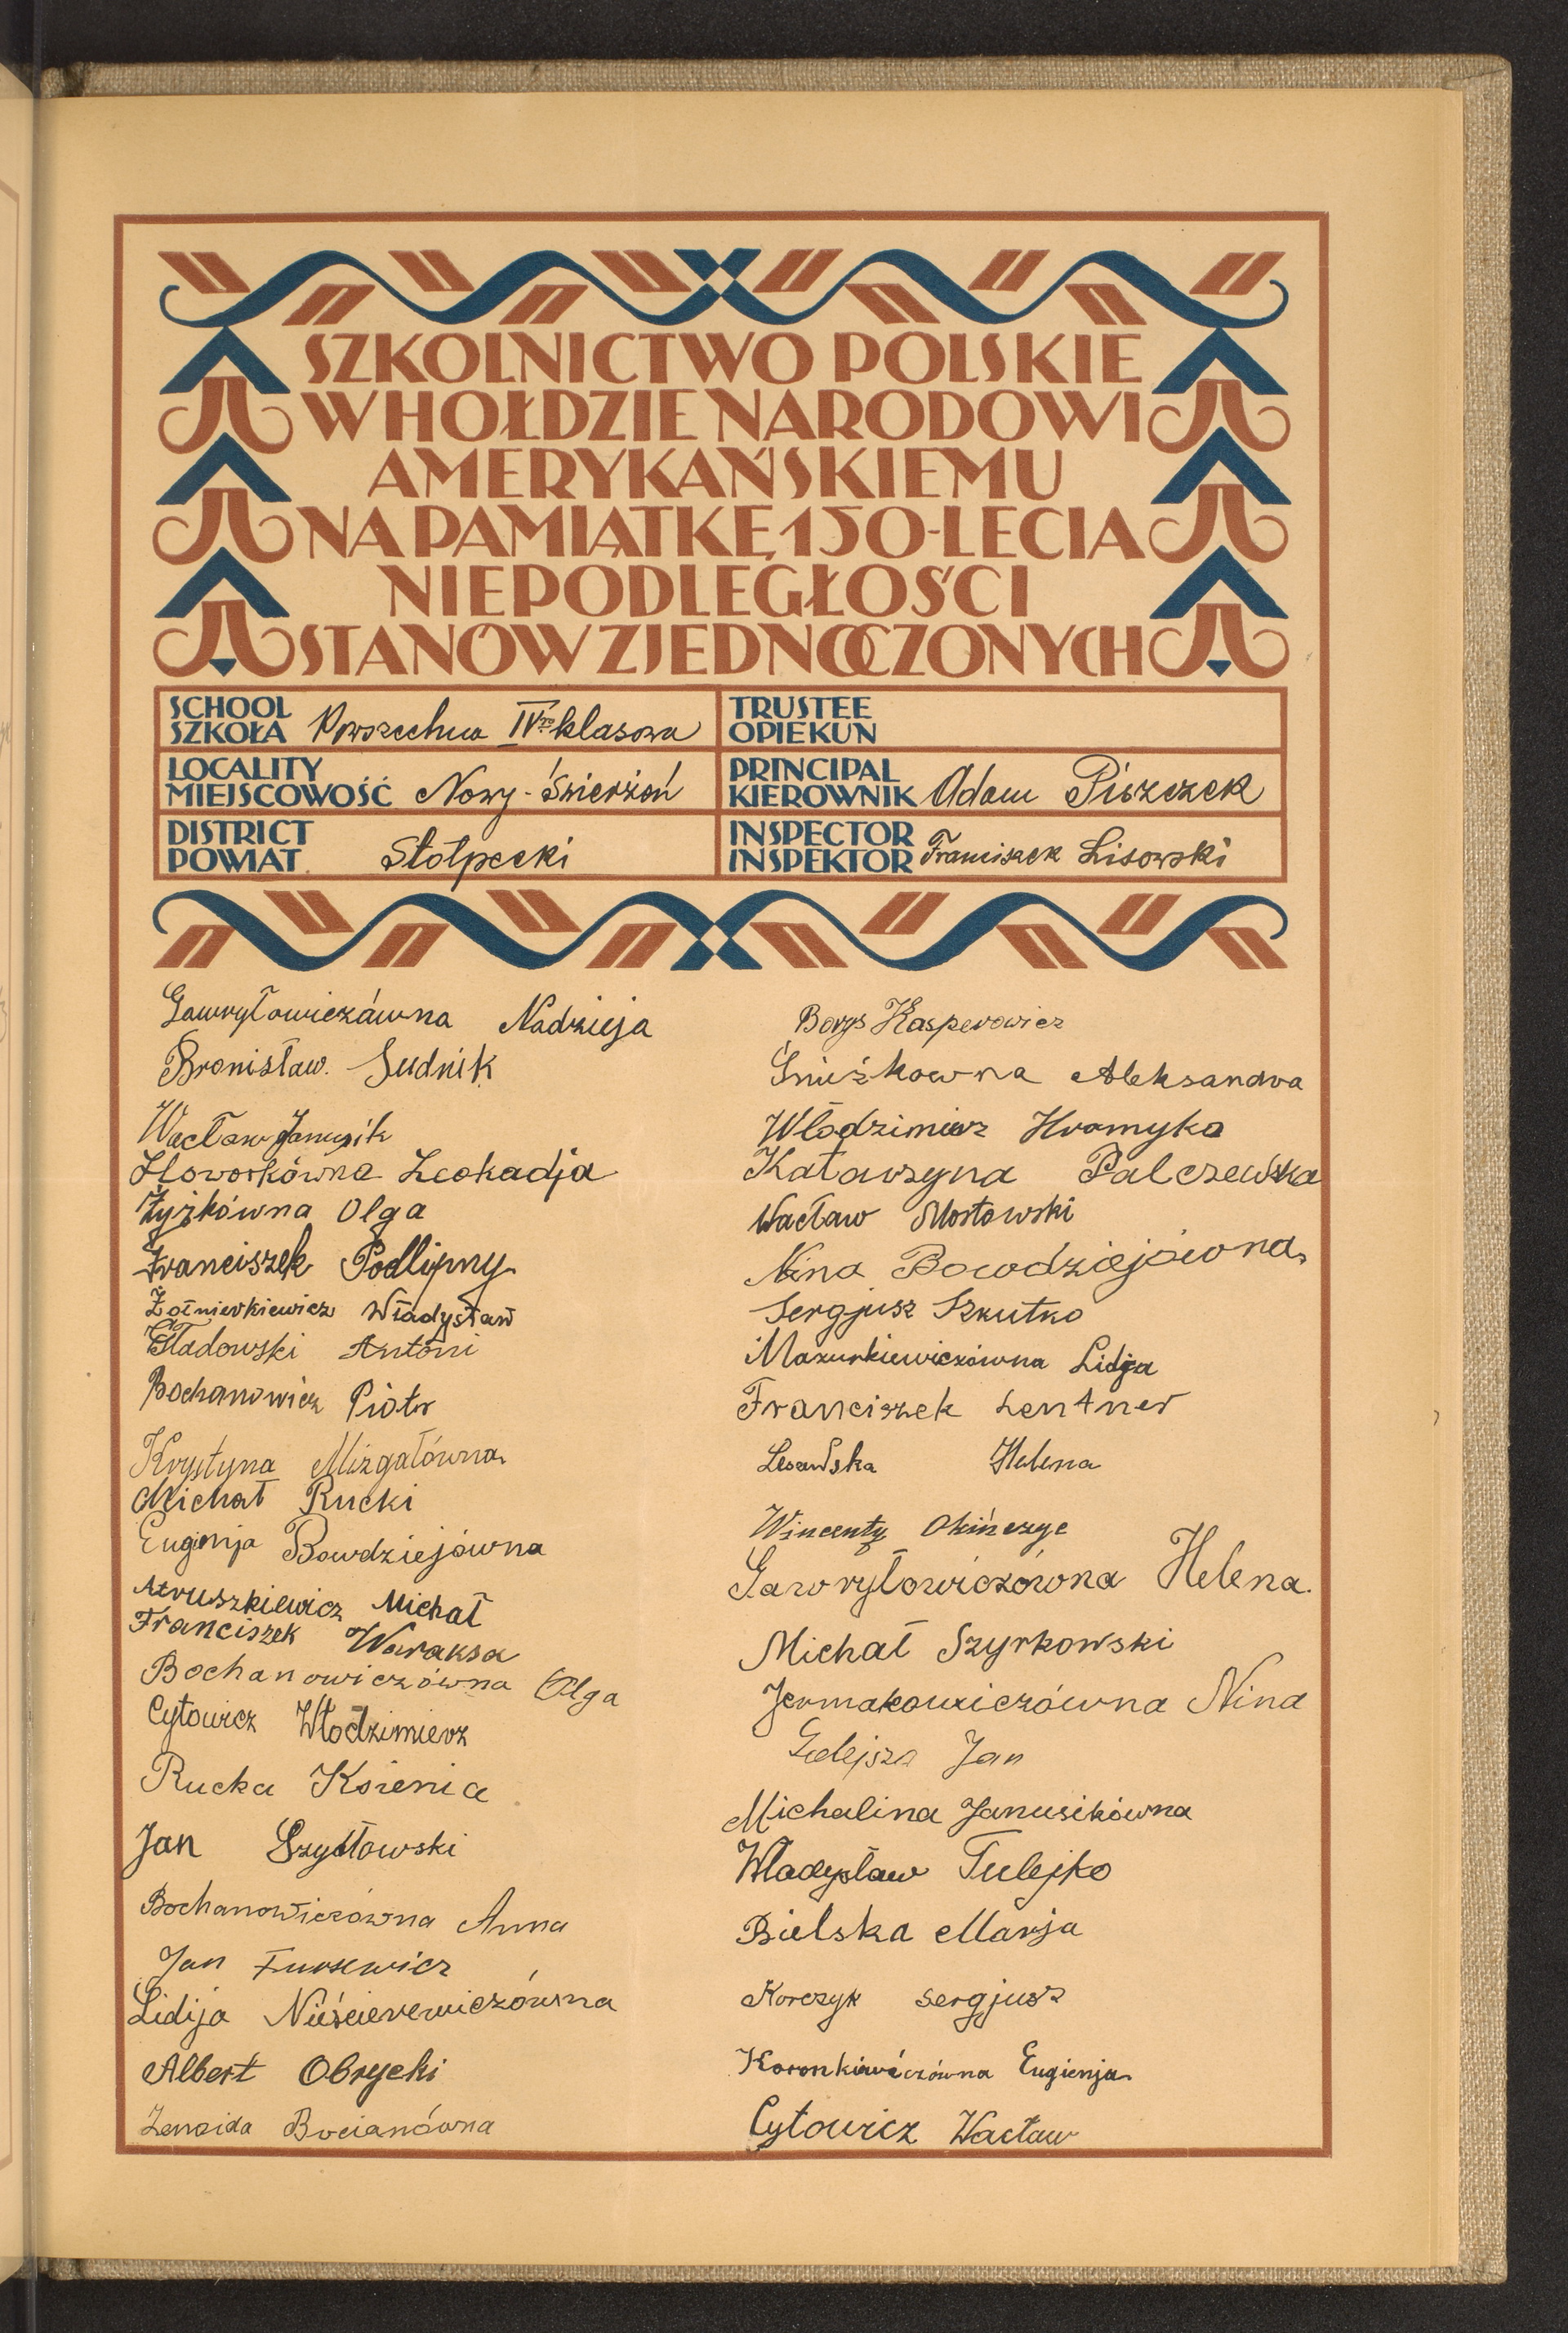 SZKOLNICTWO POLSKIE
W HOŁDZIE NARODOWI
AMERYKAŃSKIEMU
NA PAMIĄTKĘ 150-LECIA
NIEPODLEGŁOŚCI
STANÓW ZJEDNOCZONYCH
SCHOOL
SZKOŁA Powszechna IV-klasowa
TRUSTEE
OPIEKUN
LOCALITY
MIEJSCOWOŚĆ Nowy-Świerżeń
PRINCIPAL
KIEROWNIK Adam Piszczek
DISTRICT
POWIAT Stołpecki
INSPECTOR
INSPEKTOR Franciszek Lisowski
Gawryłowiczówna Nadzieja
Bronisław Sudnik
Wacław Janusik
Howorkówna Leokadja
Żyżkówna Olga
Franciszek Podlipny
Żołnierkiewicz Władysław
Gładowski Antoni
Bochanowicz Piotr
Krystyna Mizgałówna
Michał Rucki
Eugenja Bowdziejówna
Atruszkiewicz Michał
Franciszek Waraksa
Bochanowiczówna Olga
Cytowicz Włodzimierz
Rucka Ksienia
Jan Szydłowski
Bochanowiczówna Anna
Jan Fursewicz
Lidija Nieścierewiczówna
Albert Obrycki
Zenaida Bocianówna
Borys Kasperowicz
Śnieżkowna Aleksandra
Włodzimierz Hramyka
Katarzyna Palczewska
Wacław Mostowski
Nina Bowdziejówna
Sergjusz Szkutko
Mazurkiewiczówna Lidja
Franciszek Lentner
Helena
Wincenty Okińczyc
Gawryłowiczówna Helena.
Michał Szyrkowski
Jermakowiczówna Nina
Gelejsza Jan
Michalina Janusikówna
Władysław Tulejko
Bielska Marja
Korczyk Sergjusz
Koronkiewiczówna Eugienja
Cytowicz Wacław